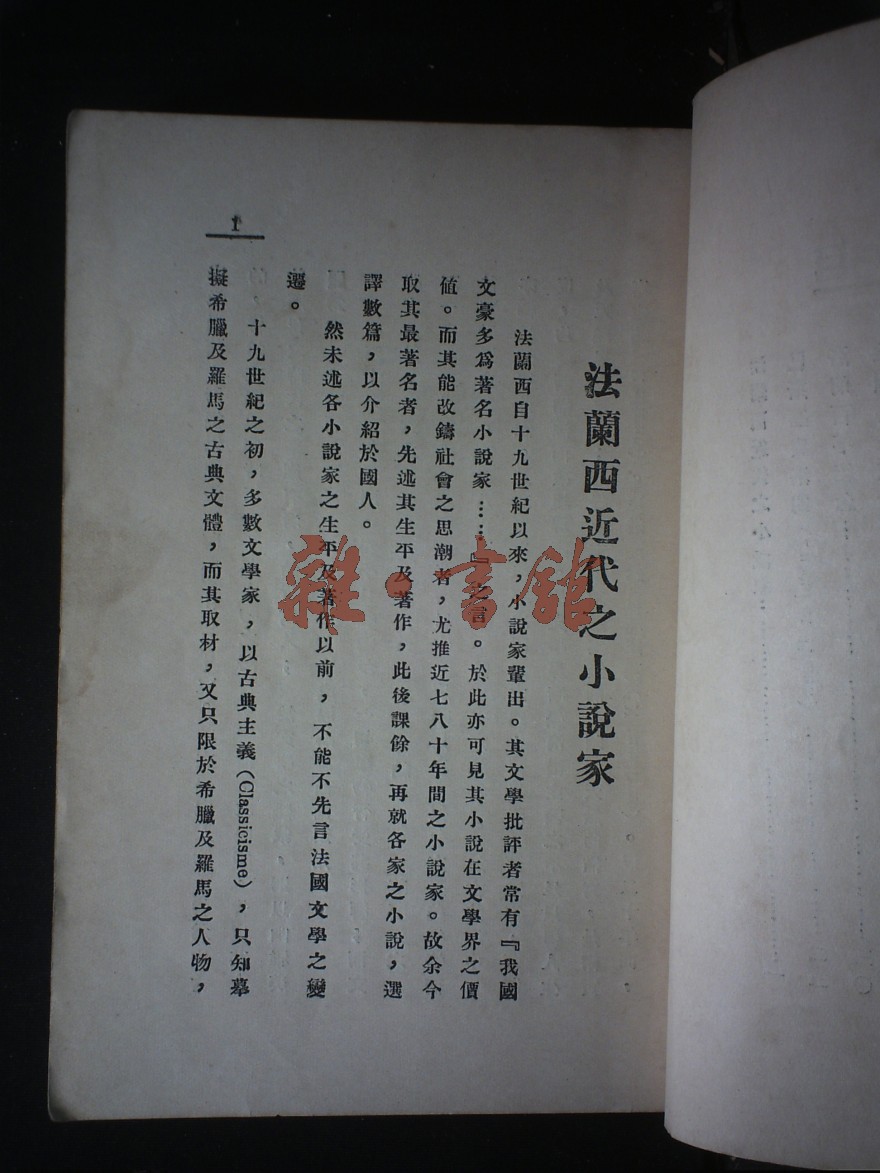 法蘭西近代之小說家
法蘭西自十九世紀以來，小說家輩出。其文學批評者常有『我國
文豪多爲著名小說家……』之言。於此亦可見其小說在文學界之價
値。而其能改鑄社會之思潮者，尤推近七八十年間之小說家。故余今
取其最著名者，先述其生平及著作，此後課餘，再就各家之小說，選
譯數篇，以介紹於國人。
然未述各小說家之生平及著作以前，不能不先言法國文學之變
遷。
十九世紀之初，多數文學家，以古典主義(Classicisme)，只知摹
擬希臘及羅馬之古典文體，而其取材，又只限於希臘及羅馬之人物，
1
雜·書館